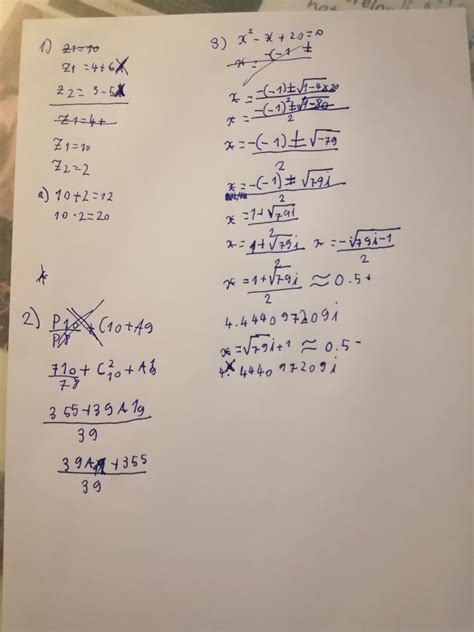 1) z1=10
z1 = 4+6
z2 = 3-5
z1=4+
z1=10
z2=2
a) 10+2=12
10·2=20
2) P10 + C10+A9
P8
710/78 + C²10 + A
355+39A19
39
39A +355
39
3) x²-x+20=0
x = -(-1 ±
x = -(-1)±√1-4×20
x = -(-1)²±√1-80
2
x = -(-1)±√-79
2
x = -(-1)±√79i
2
x = 1+√79i
2
x = 1+√79i x = -√79i-1
2 2
x = 1+√79i ≈ 0.5+
2
4.444097209i
x=√79i+1 ≈ 0.5-
4.444097209i